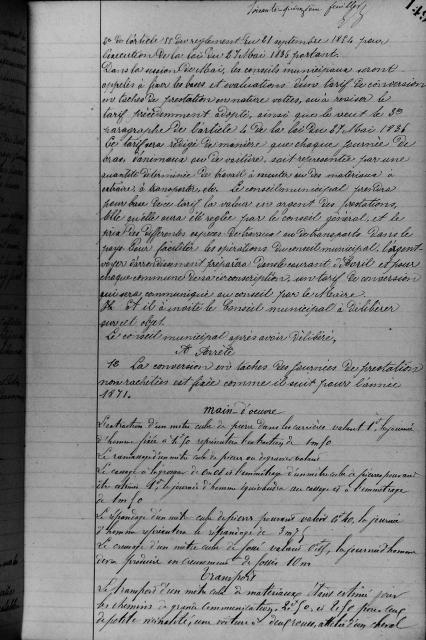 Soixante-quinzième feuillet
149
2o de l'article 58 du règlement du 21 septembre 1854 pour
l'exécution de la loi du 27 Mai 1836 portant.
Dans la session de Mai, les conseils municipaux seront
appelés à fixer les bases et évaluations d'un tarif de conversion
en taches de prestation en nature votées, ou à reviser le
tarif précédemment adopté, ainsi que le veut le 3me
paragraphe de l'article 4 de la loi du 27 Mai 1836
Ce tarif sera rédigé de manière que chaque journée de
bras, d'animaux ou de voiture, soit représentée par une
quantité déterminée de travail à exécuter ou des matériaux à
extraire, à transporter, etc. Le conseil municipal prendra
pour base de ce tarif la valeur en argent des prestations,
telle qu'elle aura été réglée par le conseil général, et le
prix des différentes espèces de travaux ou de transports dans le
pays. Pour faciliter les opérations du conseil municipal, l'agent
voyer d'arrondissement préparera dans le courant d'Avril et pour
chaque commune de sa circonscription, un tarif de conversion
qui sera communiqué au conseil par le Maire.
Et il a invité le Conseil municipal à délibérer
sur cet objet.
Le conseil municipal après avoir délibéré,
A Arrêté
1o La conversion en tâches des journées de prestation
non rachetées est fixée comme il suit pour l'année
1871.
main-d'oeuvre
L'extraction d'un mètre cube de pierre dans les carrières valant 1f, la journée
d'homme fixée à 1f50 représentera l'extraction de 1m50
Le ramassage d'un mètre cube de pierre ou de graviers valant
Le cassage à la grosseur de et l'emmétrage d'un mètre cube de pierres pouvant
être estimé 1f, la journée d'homme équivaudra au cassage et à l'emmétrage
de 1m50
Le répandage d'un mètre cube de pierre pouvant valoir , la journée
d'homme représentera le répandage de
Le creusage d'un mètre cube de fossé valant , la journée d'homme
devra produire en creusement de fossés 10m
Transport
Le transport d'un mètre cube de matériaux étant estimé pour
les chemins de grande communication, , et 1f50 pour ceux
de petite vicinalité, une voiture à deux roues, attelée d'un cheval